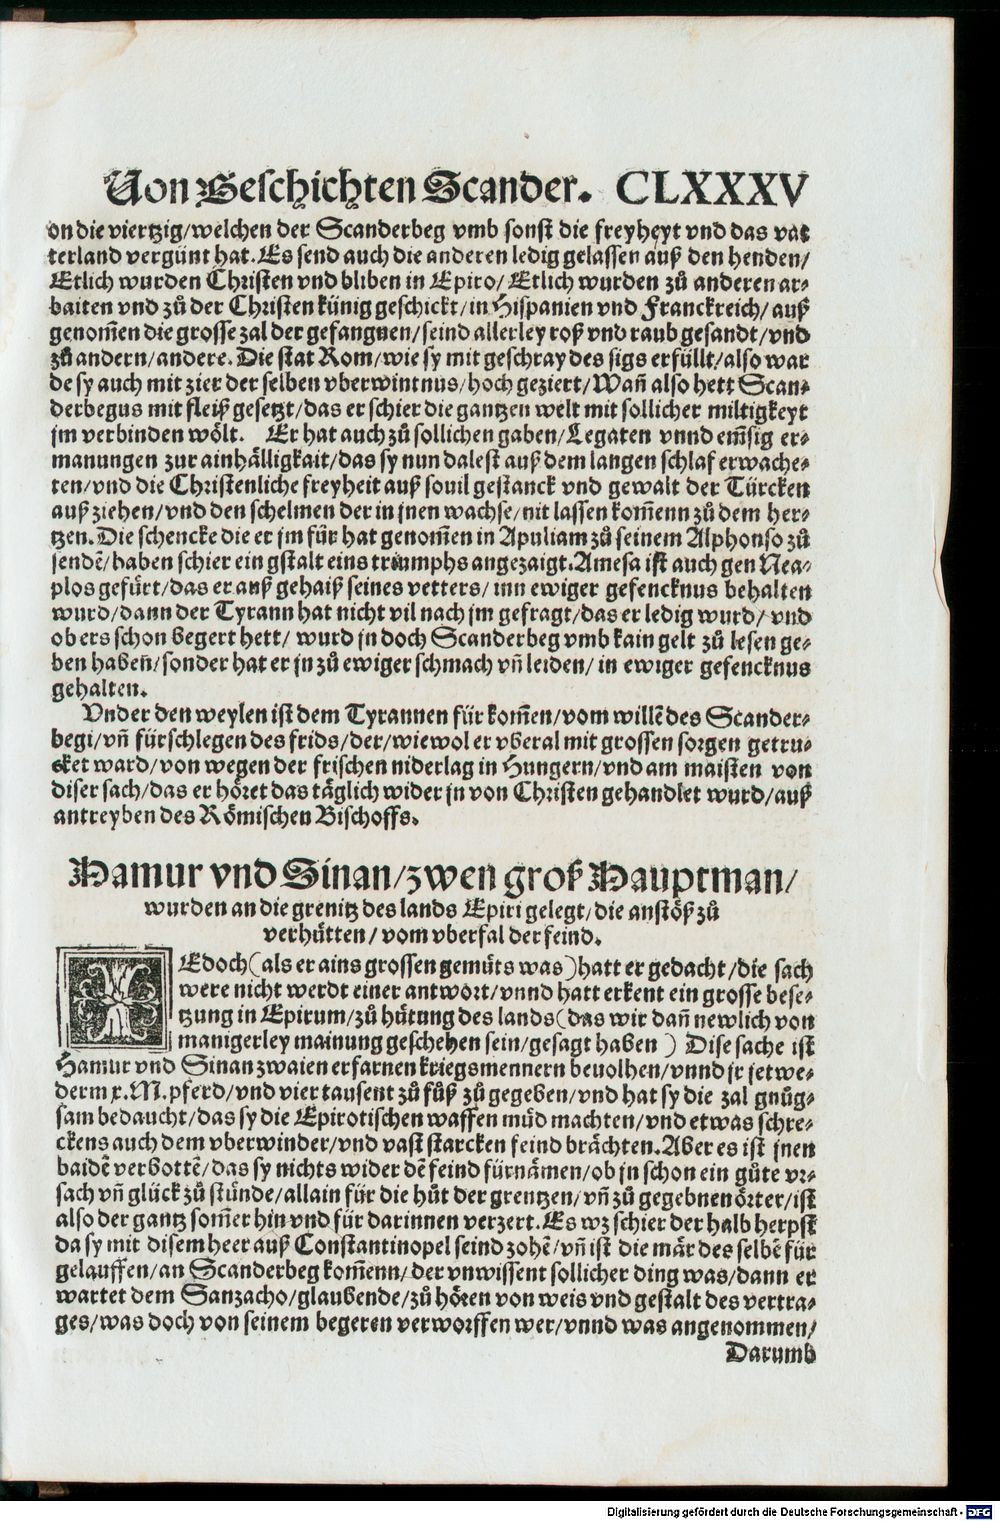 Von Geschichten Scander. CLXXXV
on die viertzig/welchen der Scanderbeg vmb sonst die freyheyt vnd das vat
terland vergünt hat. Es send auch die anderen ledig gelassen auß den henden/
Etlich wurden Christen vnd bliben in Epiro/ Etlich wurden zů anderen ar⸗
baiten vnd zů der Christen künig geschickt/in Hispanien vnd Franckreich/ auß
genom̃en die grosse zal der gefangnen/seind allerley roß vnd raub gesandt/vnd
zů andern/andere. Die stat Rom/wie sy mit geschray des sigs erfüllt/also war
de sy auch mit zier der selben vberwintnus/hoch geziert/Wañ also hett Scan⸗
derbegus mit fleiß gesetzt/das er schier die gantzen welt mit sollicher miltigkeyt
jm verbinden wölt. Er hat auch zů sollichen gaben/Legaten vnnd em̃sig er⸗
manungen zur ainhälligkait/das sy nun dalest auß dem langen schlaf erwache⸗
ten/vnd die Christenliche freyheit auß souil gestanck vnd gewalt der Türcken
auß ziehen/vnd den schelmen der in jnen wachse/nit lassen kom̃enn zů dem her⸗
tzen. Die schencke die er jm für hat genom̃en in Apuliam zů seinem Alphonso zů
sendẽ/haben schier ein gstalt eins triumphs angezaigt. Amesa ist auch gen Nea⸗
plos gefürt/das er auß gehaiß seines vetters/ inn ewiger gefencknus behalten
wurd/dann der Tyrann hat nicht vil nach jm gefragt/das er ledig wurd/ vnd
ob ers schon begert hett/ wurd jn doch Scanderbeg vmb kain gelt zů lesen ge⸗
ben habeñ/sonder hat er jn zů ewiger schmach vñ leiden/ in ewiger gefencknus
gehalten.
Vnder den weylen ist dem Tyrannen für kom̃en/vom willẽ des Scander⸗
begi/vñ fürschlegen des frids/der/wiewol er vberal mit grossen sorgen getru⸗
cket ward/von wegen der frischen niderlag in Hungern/vnd am maisten von
diser sach/das er höret das täglich wider jn von Christen gehandlet wurd/auß
antreyben des Römischen Bischoffs.
Hamur vnd Sinan/zwen groß Hauptman/
wurden an die grenitz des lands Epiri gelegt/die anstöß zů
verhütten/ vom vberfal der feind.
IEdoch(als er ains grossen gemüts was)hatt er gedacht/die sach
were nicht werdt einer antwort/vnnd hatt erkent ein grosse bese⸗
tzung in Epirum/zů hütung des lands(das wir dañ newlich von
manigerley mainung geschehen sein/gesagt haben) Dise sache ist
Hamur vnd Sinan zwaien erfarnen kriegsmennern beuolhen/vnnd jr jetwe⸗
derm x. M. pferd/vnd vier tausent zů fůß zů gegeben/vnd hat sy die zal gnůg⸗
sam bedaucht/das sy die Epirotischen waffen müd machten/vnd etwas schre⸗
ckens auch dem vberwinder/vnd vast starcken feind brächten. Aber es ist jnen
baidẽ verbottẽ/das sy nichts wider dẽ feind fürnämen/ob jn schon ein gůte vr⸗
sach vñ glück zů stünde/allain für die hůt der grentzen/vñ zů gegebnen örter/ist
also der gantz som̃er hin vnd für darinnen verzert. Es wz schier der halb herpst
da sy mit disem heer auß Constantinopel seind zohẽ/vñ ist die mär des selbẽ für
gelauffen/an Scanderbeg kom̃enn/der vnwissent sollicher ding was/dann er
wartet dem Sanzacho/glaubende/zů hören von weis vnd gestalt des vertra⸗
ges/was doch von seinem begeren verworffen wer/vnnd was angenommen/
Darumb
Digitalisierung gefördert durch die Deutsche Forschungsgemeinschaft - DFG